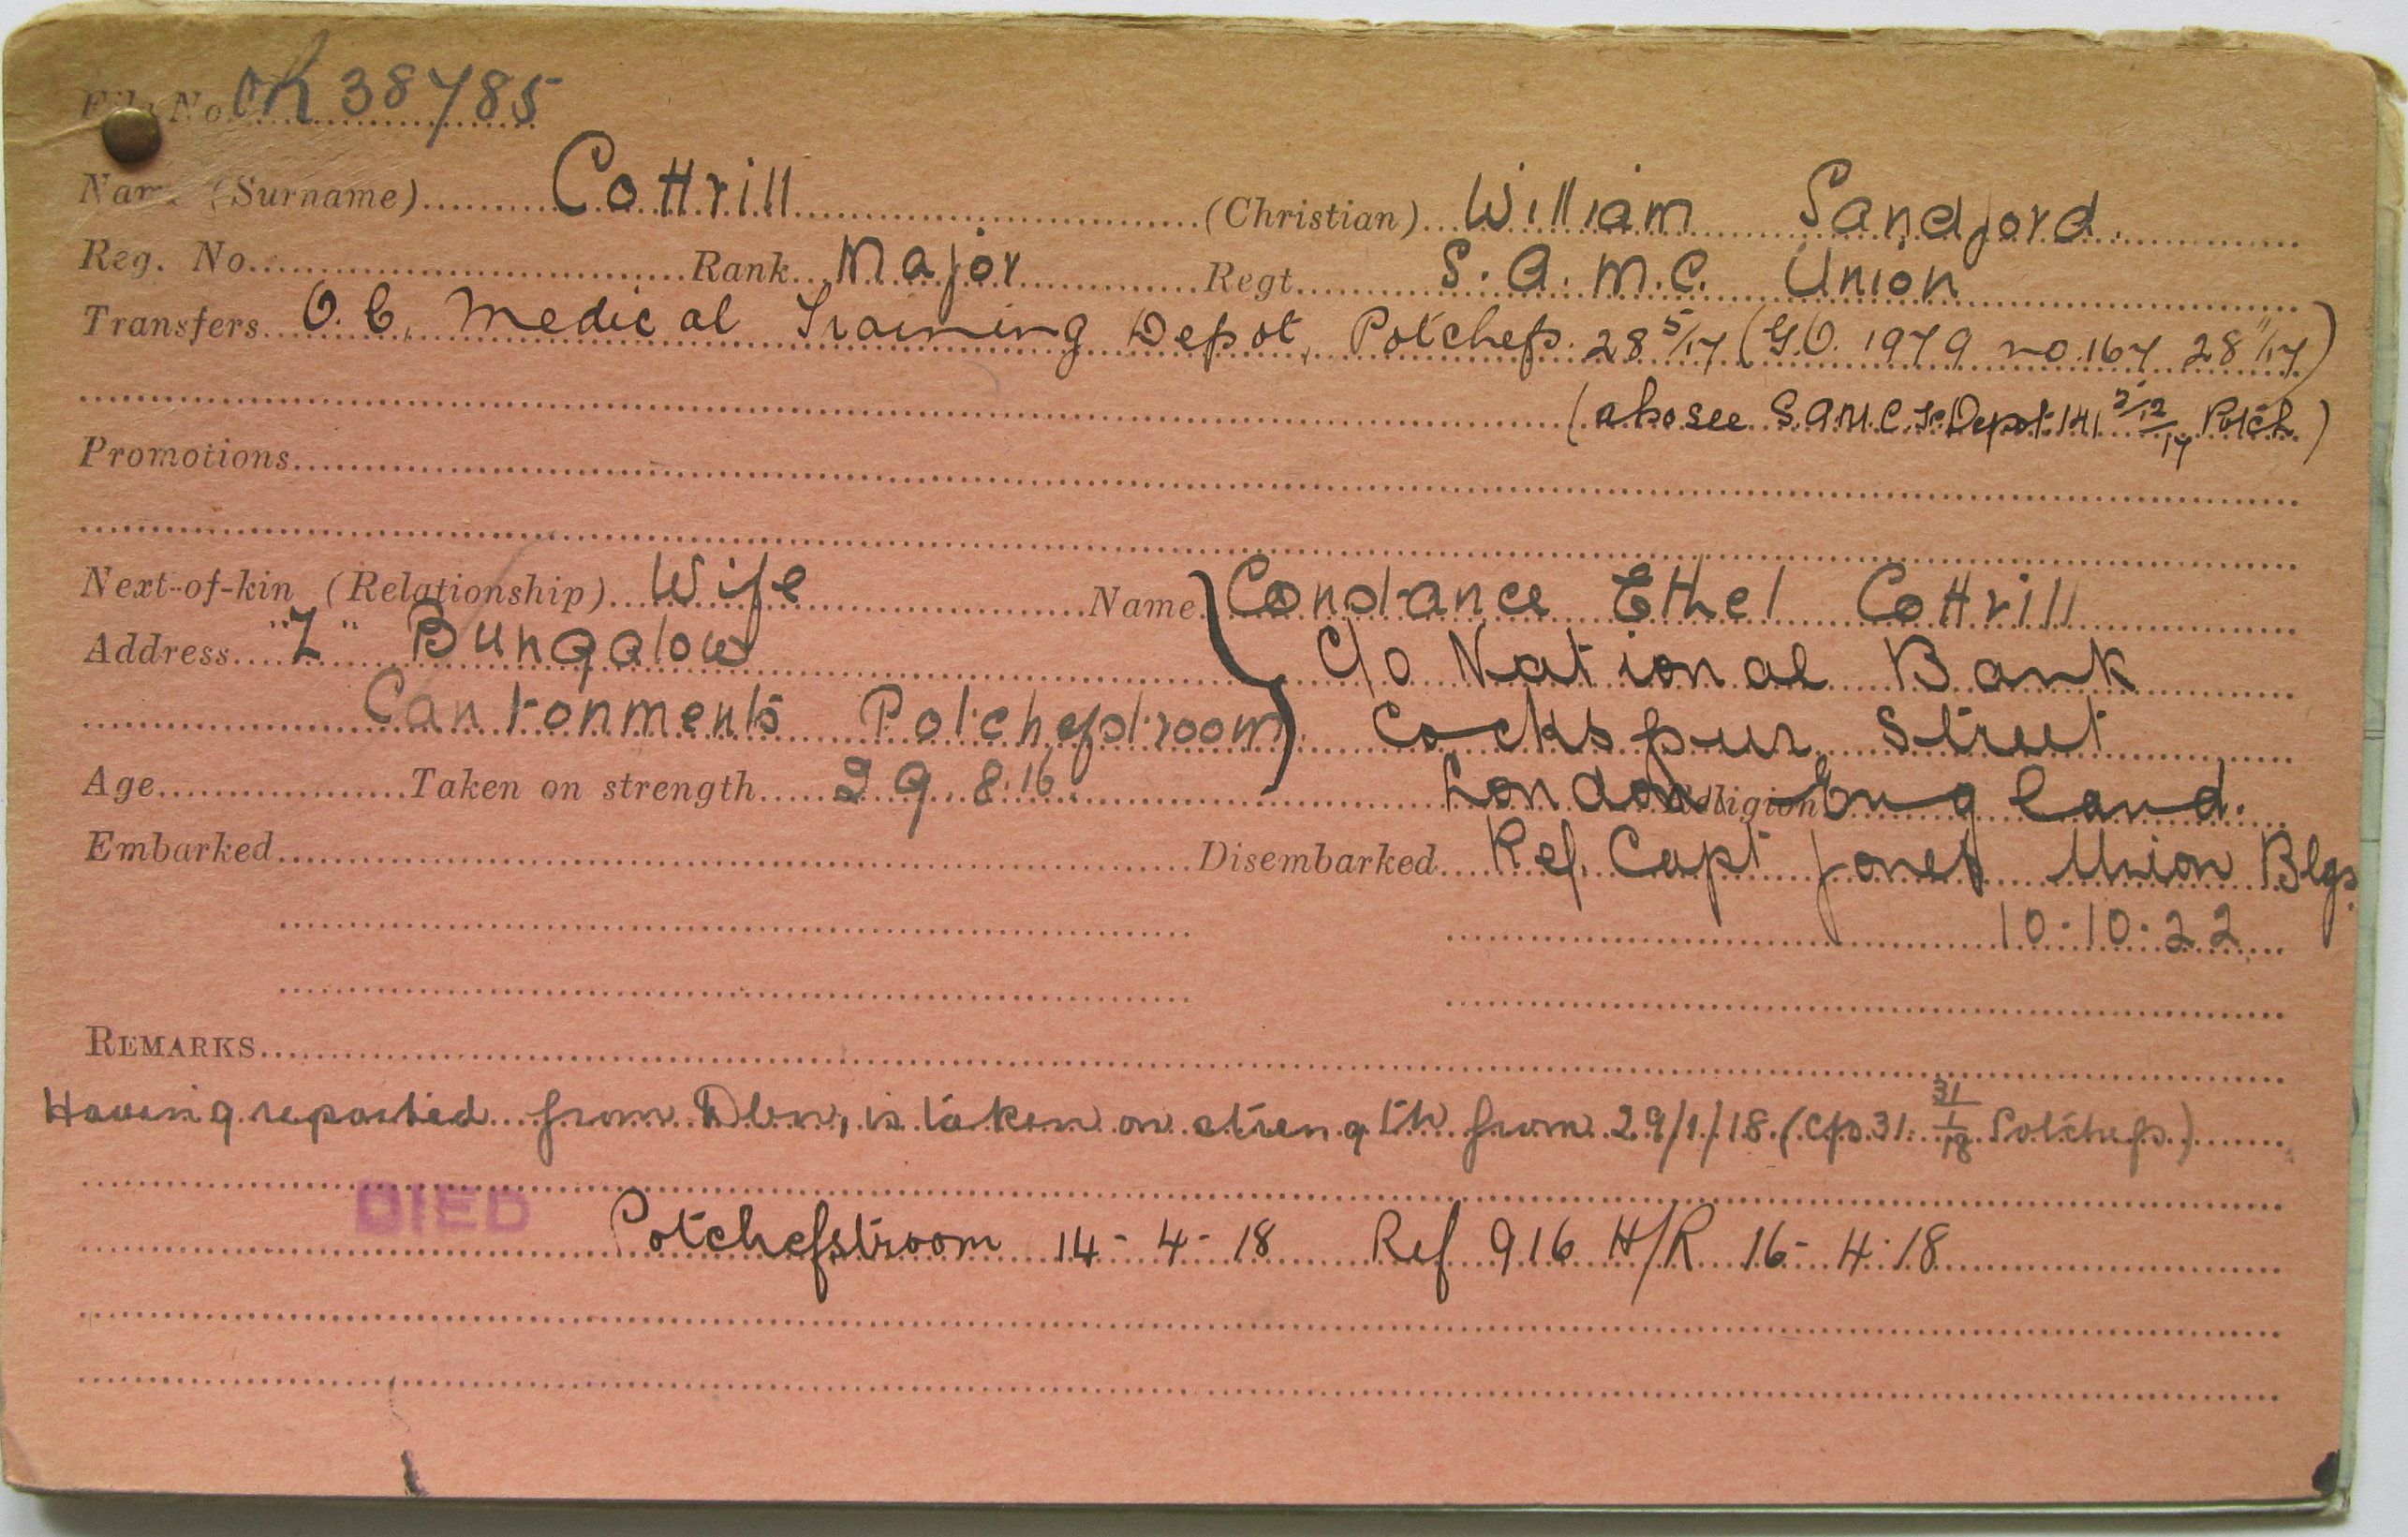 File No. OR 38785
Name (Surname) Cottrill (Christian) William Sandford.
Reg. No. Rank Major Regt. S.A.M.C. Union
Transfers O.C. Medical Training Depot, Potchefs. 28 5/17 (G.O. 1979 no. 167 28 11/17)
(also see S.A.M.C. Tr. Depot 141 3/12/17 Potch.)
Promotions
Next-of-kin (Relationship) Wife Name Constance Ethel Cottrill
Address "Z" Bungalow C/o National Bank
Cantonments Potchefstroom Cockspur Street
Age Taken on strength 29.8.16. Religion London England.
Embarked Disembarked Ref. Capt Jones Union Blgs.
10-10-22
REMARKS
Having reported from Dbn, is taken on strength from 29/1/18 (cps 31. 31/1/18 Potchefs.)
DIED Potchefstroom 14-4-18 Ref 916 H/R 16-4-18